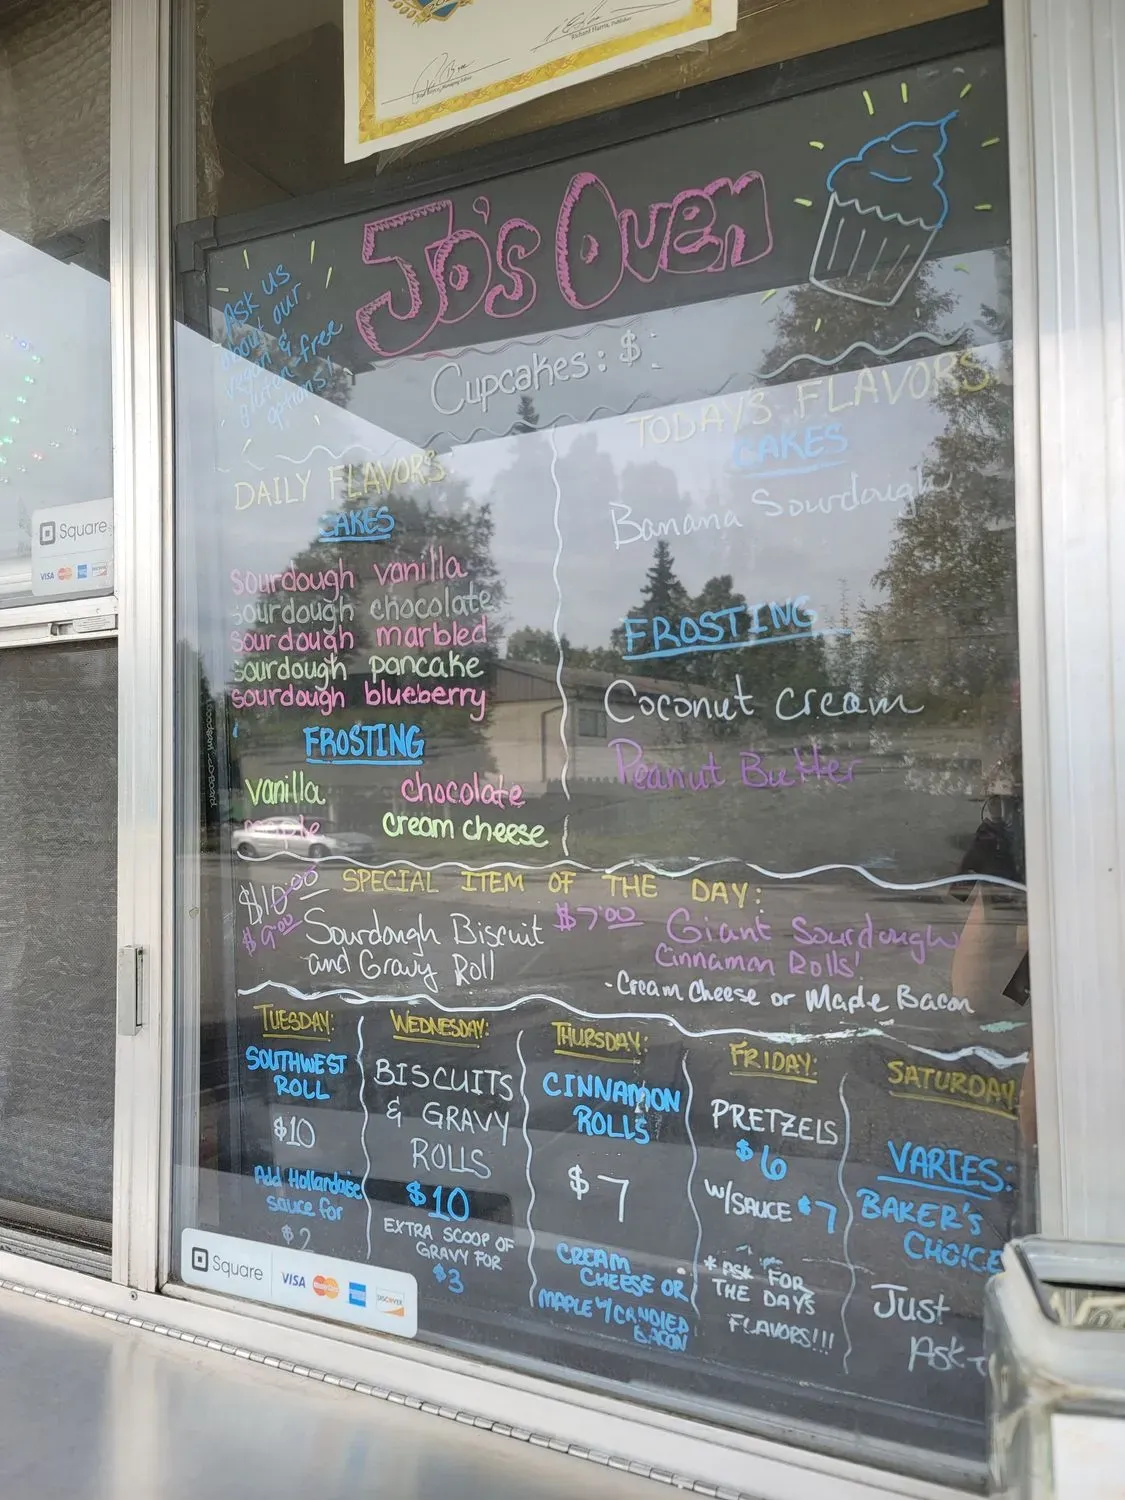 Richard Harris, Publisher
Jo's Oven
Ask us
about our
vegan &
gluten free
options!
Cupcakes: $
DAILY FLAVORS
CAKES
sourdough vanilla
sourdough chocolate
sourdough marbled
sourdough pancake
sourdough blueberry
FROSTING
vanilla chocolate
maple cream cheese
TODAY'S FLAVORS
CAKES
Banana Sourdough
FROSTING
Coconut Cream
Peanut Butter
SPECIAL ITEM OF THE DAY:
$10.00
$9.00
Sourdough Biscuit
and Gravy Roll
$7.00 Giant Sourdough
Cinnamon Rolls!
- Cream Cheese or Maple Bacon
TUESDAY:
SOUTHWEST
ROLL
$10
Add Hollandaise
sauce for
$2
WEDNESDAY:
BISCUITS
& GRAVY
ROLLS
$10
EXTRA SCOOP OF
GRAVY FOR
$3
THURSDAY:
CINNAMON
ROLLS
$7
CREAM
CHEESE OR
MAPLE W/CANDIED
BACON
FRIDAY:
PRETZELS
$6
W/SAUCE $7
* ASK FOR
THE DAYS
FLAVORS!!!
SATURDAY
VARIES:
BAKER'S
CHOICE
Just
Ask
Square
VISA MasterCard DISCOVER
Square
VISA